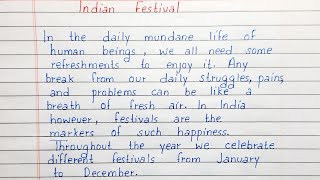 Indian Festival
In the daily mundane life of
human beings, we all need some
refreshments to enjoy it. Any
break from our daily struggles, pains
and problems can be like a
breath of fresh air. In India
however, festivals are the
markers of such happiness.
Throughout the year we celebrate
different festivals from January
to December.